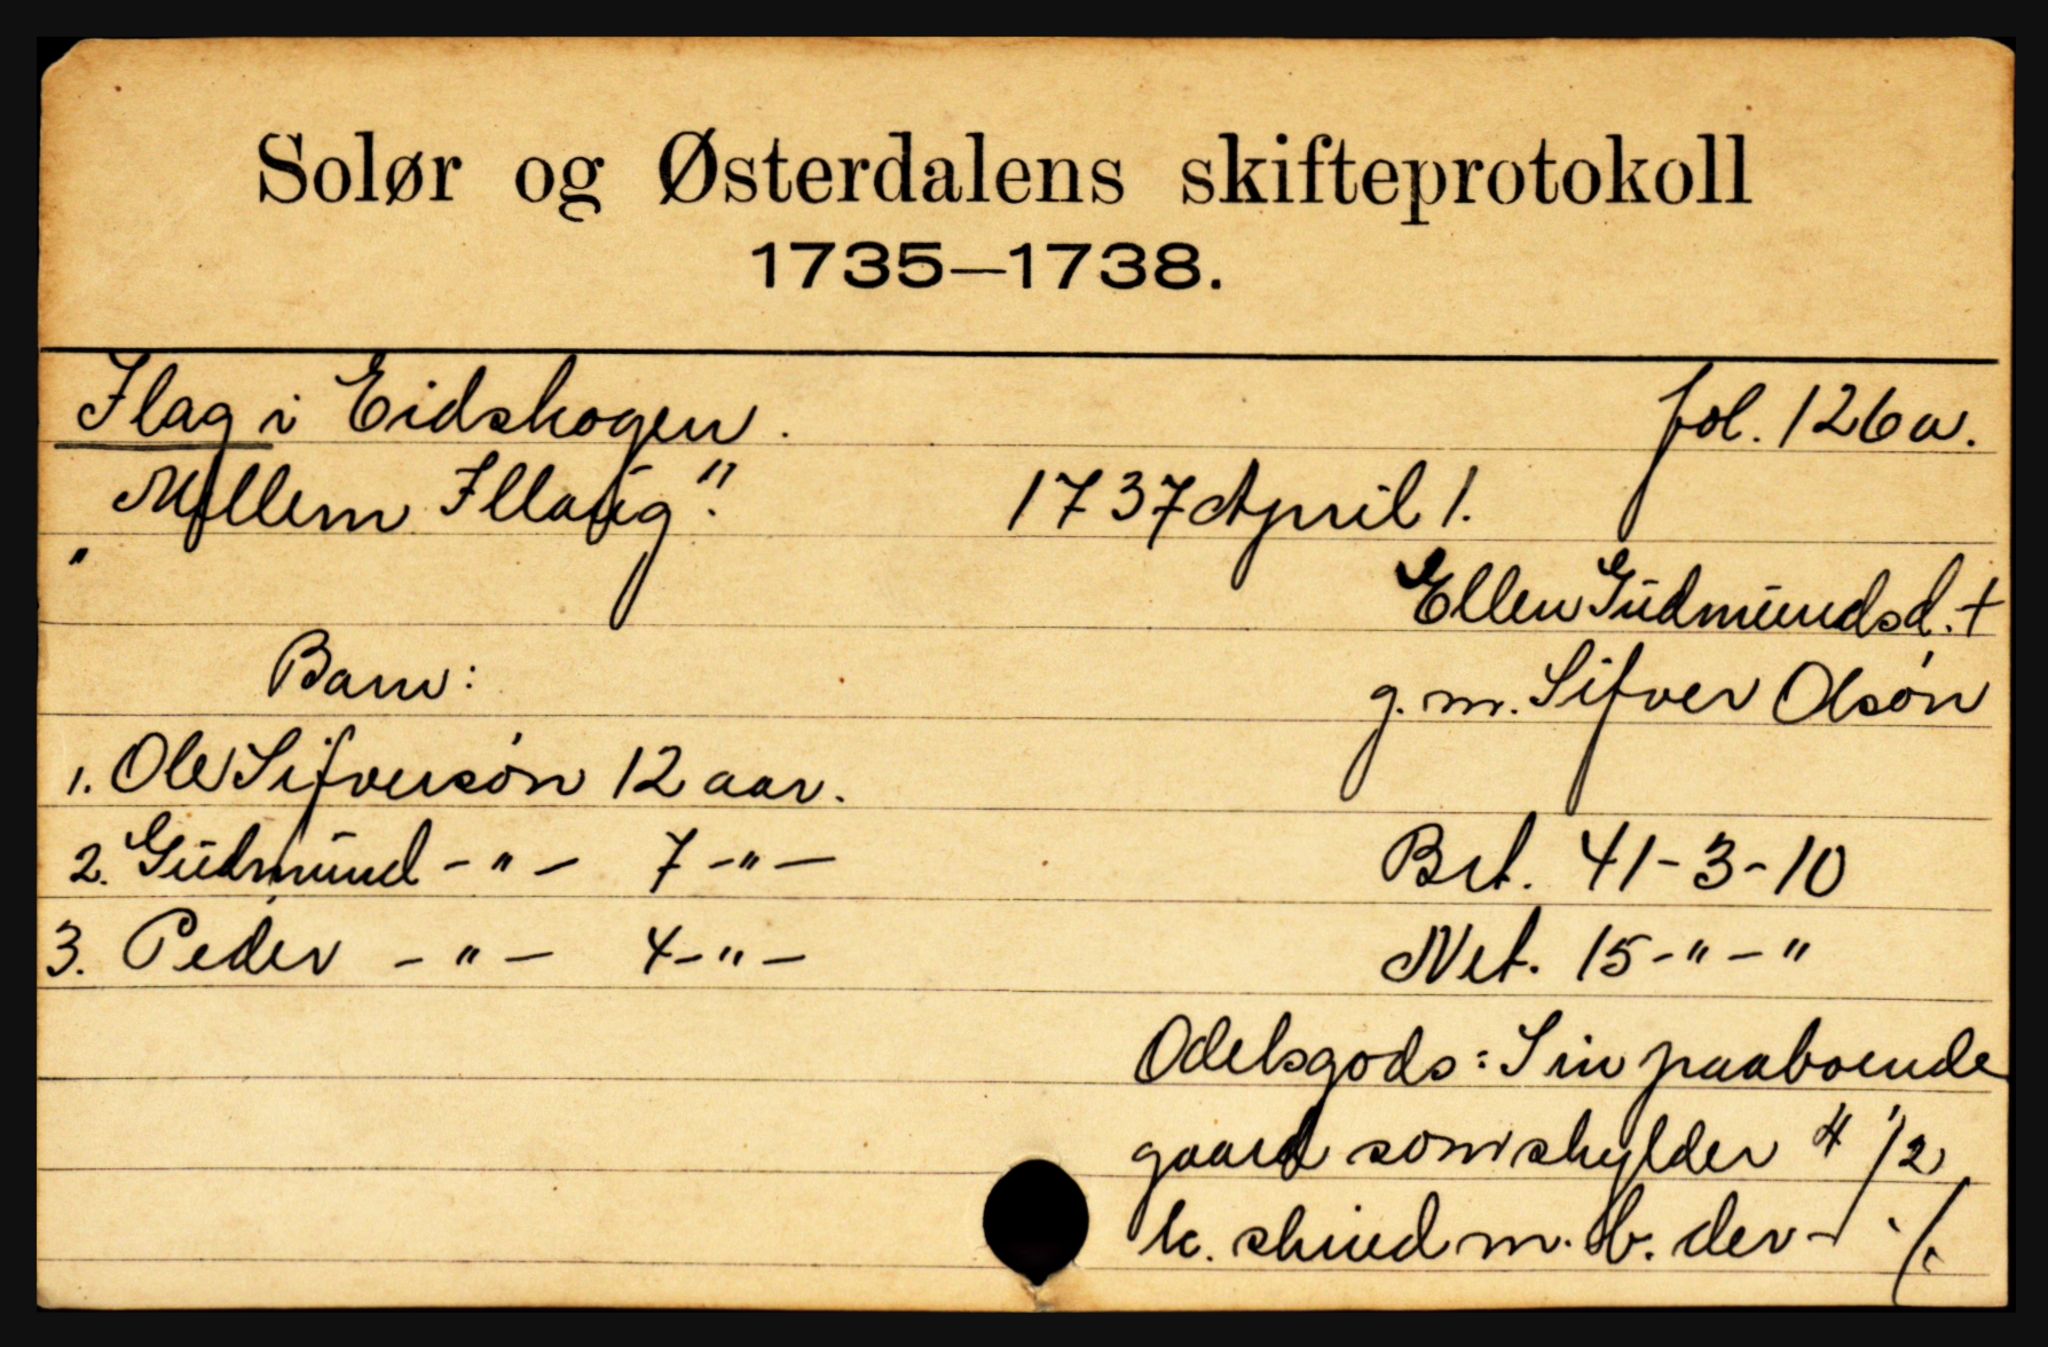 Solør og Østerdalens skifteprotokoll
1735—1738.
Ilag i Eidskogen. fol. 126a.
"Mellem Illaug". 1737 April 1.
Ellen Gudmundsd. +
Barn: g. m. Sifver Olsøn
1. Ole Sifversøn 12 aar.
2. Gudmund - " - 7 - " - Brt. 41-3-10
3. Peder - " - 4 - " - Net. 15 - " - "
Odelsgods: Sin paaboende
gaard som skylder 4 1/2
k. skind m. b. der- ·/.